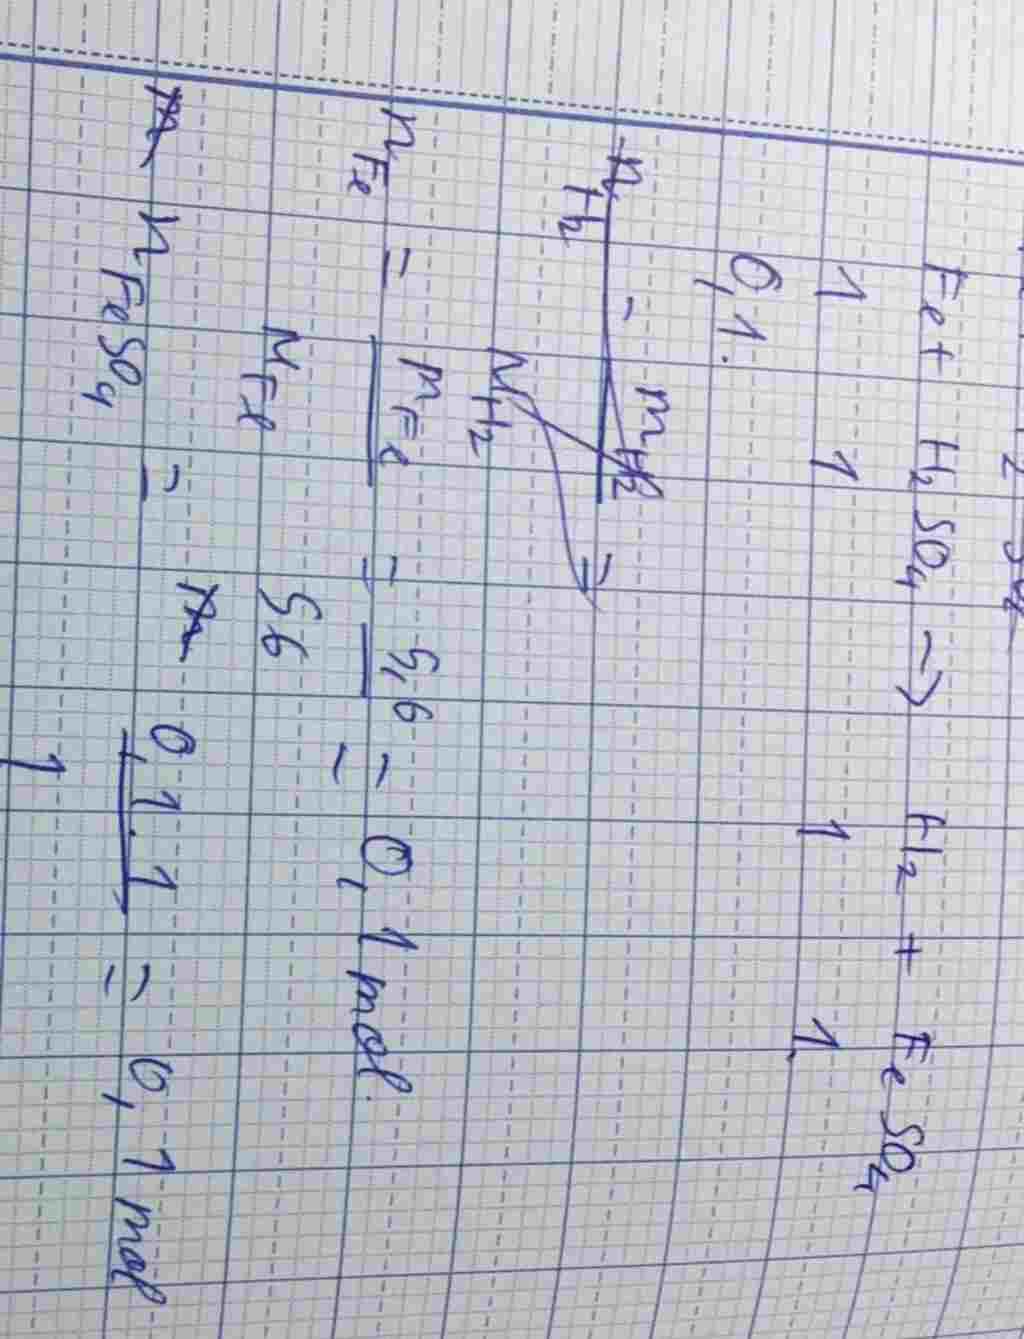 Fe + H2SO4 → H2 + FeSO4
1 1 1 1
0,1
nFe = mFe / MFe = 5,6 / 56 = 0,1 mol
nFeSO4 = 0,1.1 / 1 = 0,1 mol